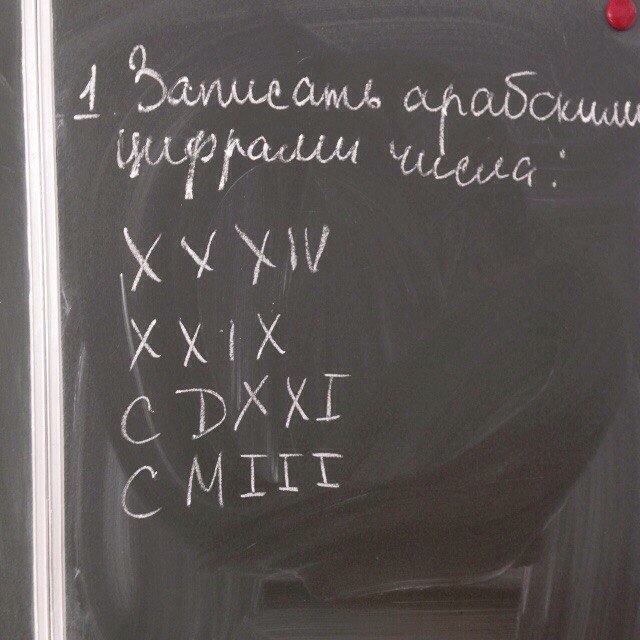 1 Записать арабскими
цифрами числа:
X X XIV
X X I X
C D X X I
C M I I I